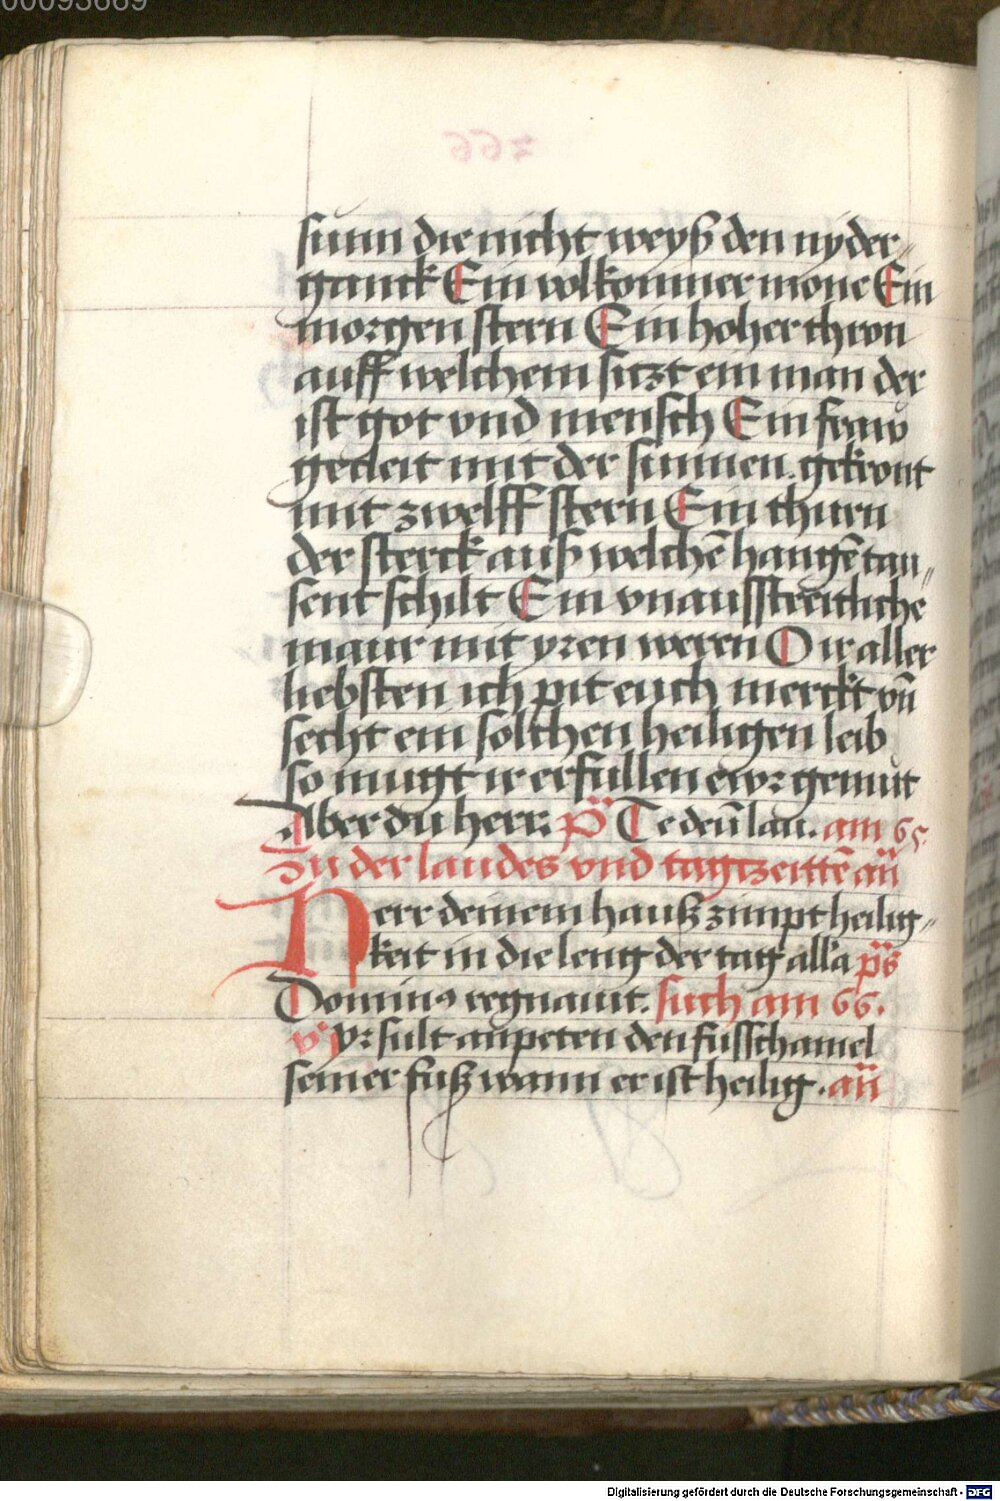 00093669
sunn die nicht weyß den nyder„
ganck Ein volkommer mone Ein
morgen stern Ein hoher thron
auff welchem sitzt ein man der
ist got vnd mensch Ein fraw
gecleit mit der sunnen. gekront
mit zwelff stern Ein thurn
der sterck auß welchē hangē tau„
sent schilt Ein vnausstreitliche
maur mit yren weren O ir aller
liebsten ich pit euch merckt vn̄
secht ein solchen heiligen leib
so mugt ir erfullen ewr gemut
Aber du herr. p̄s Te deū lau. am 65.
Zu der laudes vnd tagtzeittē an̄
Herr deinem hauß zimpt heilig„
keit in die leng der tag all'a p̄s
Dominꝰ regnauit. such am 66.
v' yr sult anpeten den fusschamel
seiner fuß wann er ist heilig. an̄
Digitalisierung gefördert durch die Deutsche Forschungsgemeinschaft - DFG